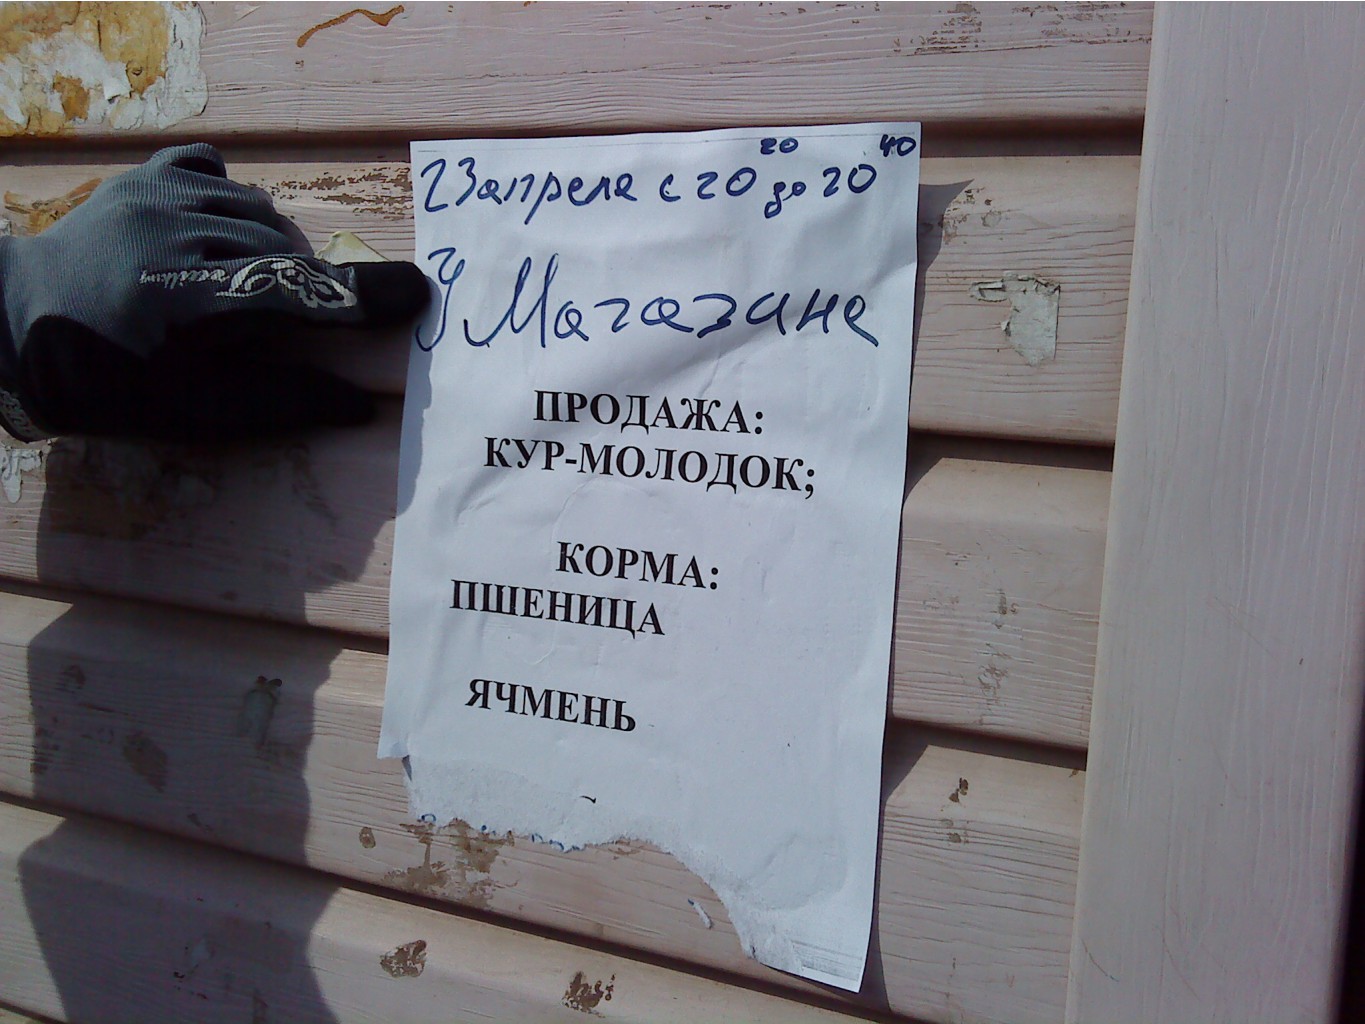 23 апреля с 20 20 до 20 40
У Магазине
ПРОДАЖА:
КУР-МОЛОДОК;
КОРМА:
ПШЕНИЦА
ЯЧМЕНЬ